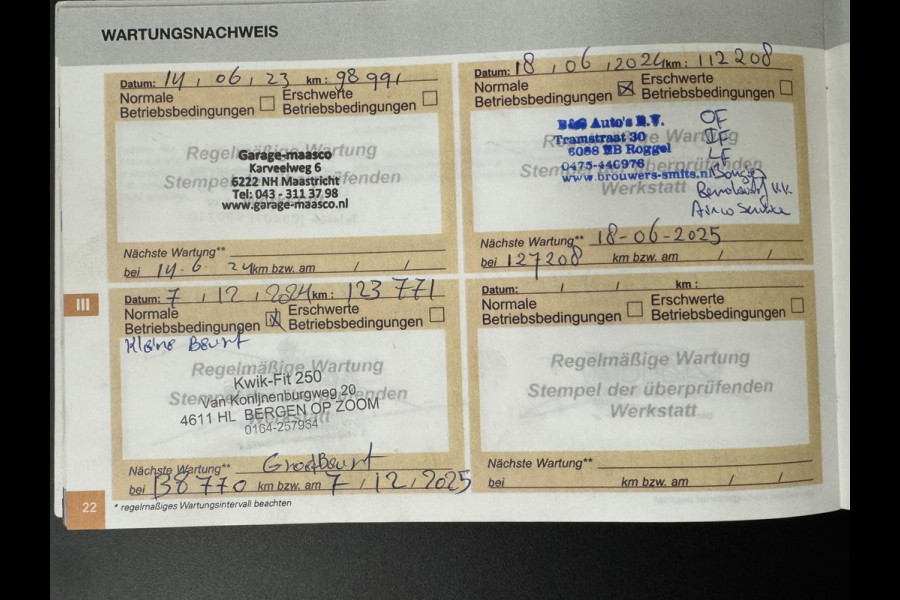 WARTUNGSNACHWEIS
Datum: 14 , 06 , 23 km : 98 991
Normale Betriebsbedingungen
Erschwerte Betriebsbedingungen
Regelmäßige Wartung
Stempel der überprüfenden
Garage-maasco
Karveelweg 6
6222 NH Maastricht
Tel: 043 - 311 37 98
www.garage-maasco.nl
Nächste Wartung**
bei 14-6- 24 km bzw. am / /
Datum: 18 , 06 , 2024 km : 112 208
Normale Betriebsbedingungen
Erschwerte Betriebsbedingungen
Regelmäßige Wartung
Stempel der überprüfenden
Werkstatt
B&S Auto's B.V.
Tramstraat 30
6088 EB Roggel
0475-440976
www.brouwers-smits.nl
OF
IF
LF
Bougies
KK
Airco
Nächste Wartung** 18-06-2025
bei 127208 km bzw. am / /
III
Datum: 7 , 12 , 2024 km : 123 771
Normale Betriebsbedingungen
Erschwerte Betriebsbedingungen
Kleine Beurt
Regelmäßige Wartung
Stempel der überprüfenden
Werkstatt
Kwik-Fit 250
Van Konijnenburgweg 20
4611 HL BERGEN OP ZOOM
0164-257954
Nächste Wartung** Groot Beurt
bei 138 770 km bzw. am 7 , 12 , 2025
Datum: / / km :
Normale Betriebsbedingungen
Erschwerte Betriebsbedingungen
Regelmäßige Wartung
Stempel der überprüfenden
Werkstatt
Nächste Wartung**
bei km bzw. am / /
22
* regelmäßiges Wartungsintervall beachten